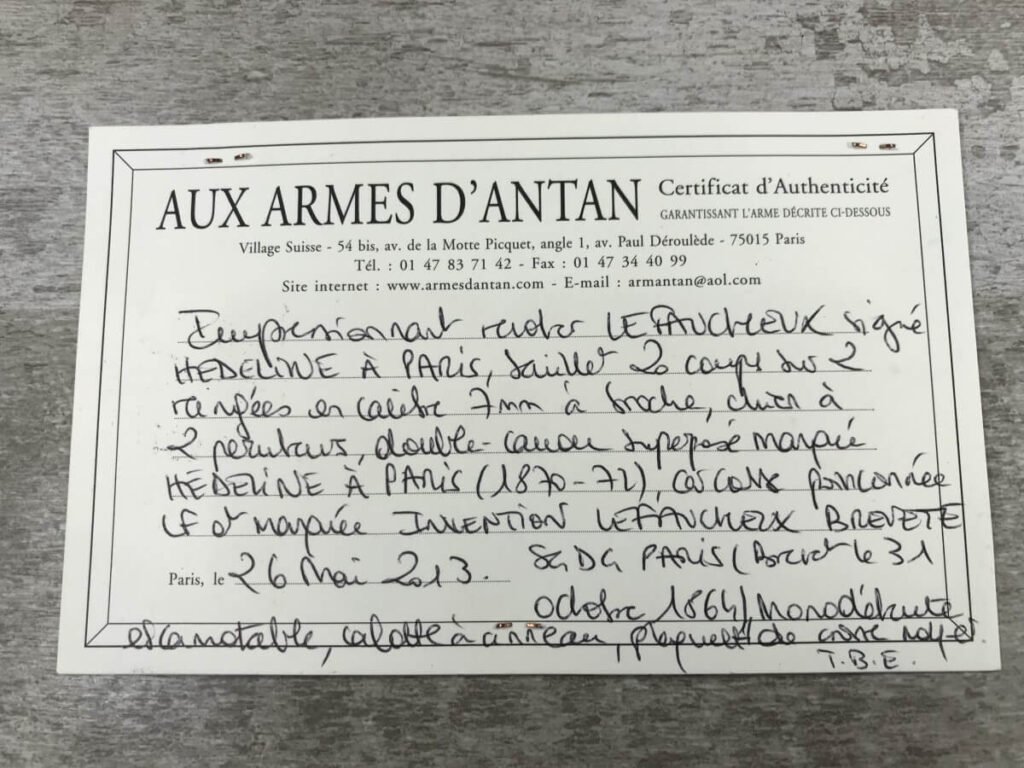 AUX ARMES D'ANTAN Certificat d'Authenticité
GARANTISSANT L'ARME DÉCRITE CI-DESSOUS
Village Suisse - 54 bis, av. de la Motte Picquet, angle 1, av. Paul Déroulède - 75015 Paris
Tél. : 01 47 83 71 42 - Fax : 01 47 34 40 99
Site internet : www.armesdantan.com - E-mail : armantan@aol.com
Impressionnant revolver LEFAUCHEUX signé
HEDELINE À PARIS, 20 coups sur 2
rangées en calibre 7mm à broche, chien à
2 percuteurs, double-canon superposé marqué
HÉDELINE À PARIS (1870-72), carcasse poinconnée
LF et marquée INVENTION LEFAUCHEUX BREVETE
Paris, le 26 Mai 2013. SGDG PARIS (Brevet le 31
octobre 1864) Monodétente
escamotable, calotte à anneau, plaquettes de noyer.
T.B.E.